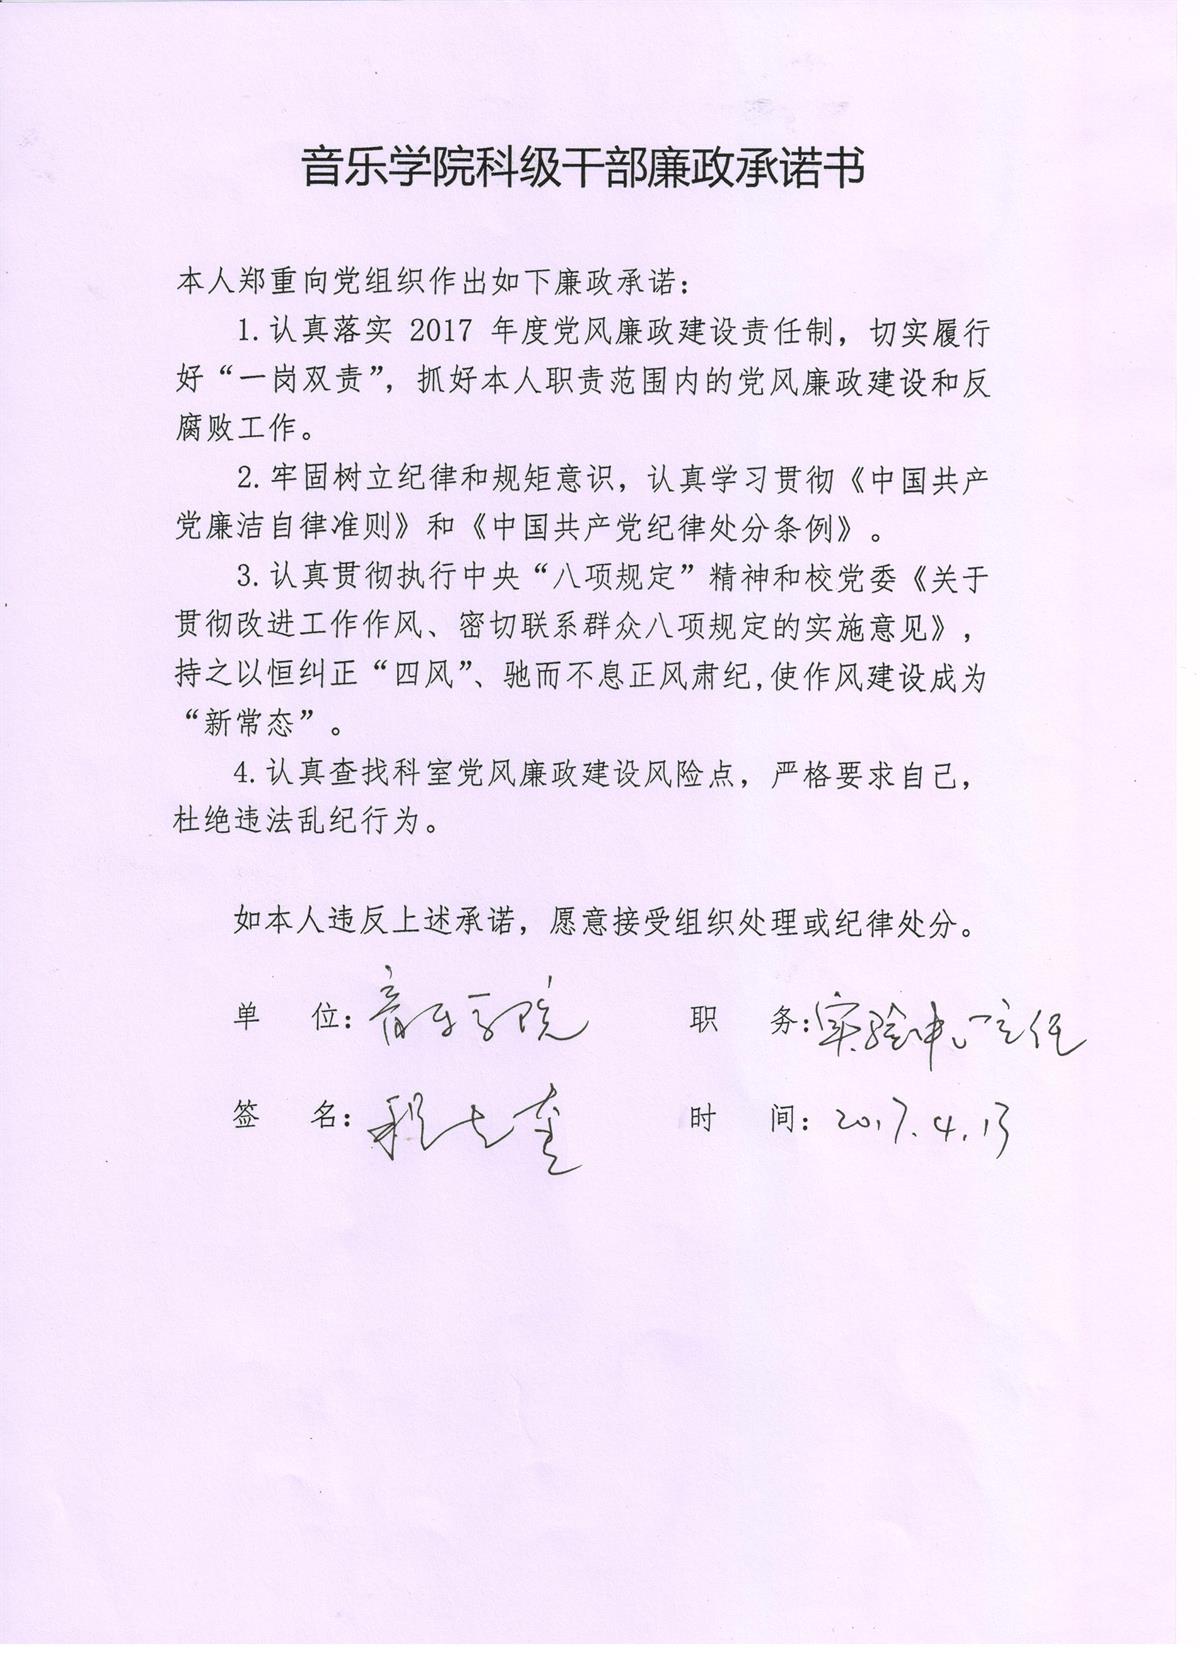 音乐学院科级干部廉政承诺书
本人郑重向党组织作出如下廉政承诺：
1.认真落实 2017 年度党风廉政建设责任制，切实履行
好“一岗双责”，抓好本人职责范围内的党风廉政建设和反
腐败工作。
2.牢固树立纪律和规矩意识，认真学习贯彻《中国共产
党廉洁自律准则》和《中国共产党纪律处分条例》。
3.认真贯彻执行中央“八项规定”精神和校党委《关于
贯彻改进工作作风、密切联系群众八项规定的实施意见》，
持之以恒纠正“四风”、驰而不息正风肃纪,使作风建设成为
“新常态”。
4.认真查找科室党风廉政建设风险点，严格要求自己，
杜绝违法乱纪行为。
如本人违反上述承诺，愿意接受组织处理或纪律处分。
单 位：音乐学院 职 务：实验中心主任
签 名： 时 间：2017.4.13